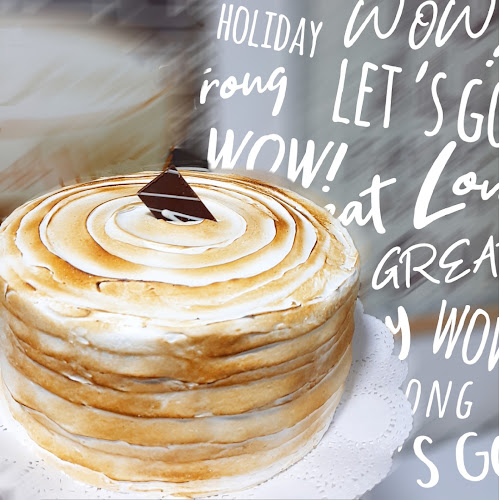 HOLIDAY WOW!
rong LET'S GO
WOW!
eat Lov
GREAT
y WOW
ONG
'S GO